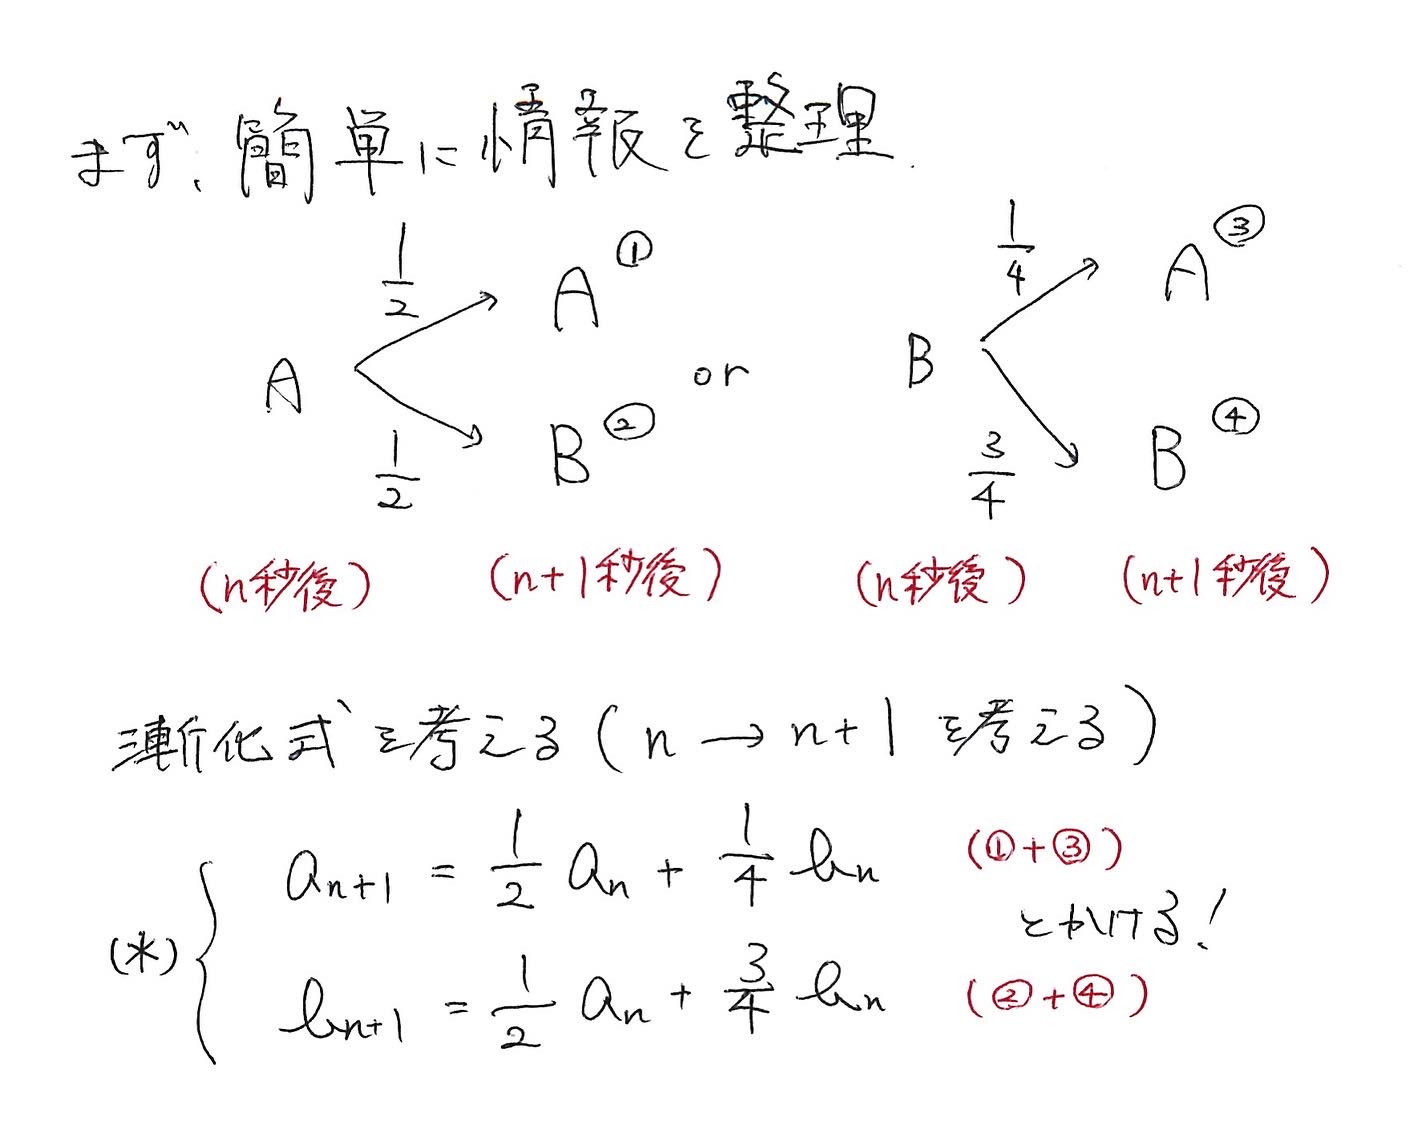 まず、簡単に情報を整理.
1/2 A ① 1/4 A ③
A or B
1/2 B ② 3/4 B ④
(n秒後) (n+1秒後) (n秒後) (n+1秒後)
漸化式を考える(n → n+1 を考える)
a_{n+1} = 1/2 a_n + 1/4 b_n (①+③)
(*) とかける!
b_{n+1} = 1/2 a_n + 3/4 b_n (②+④)